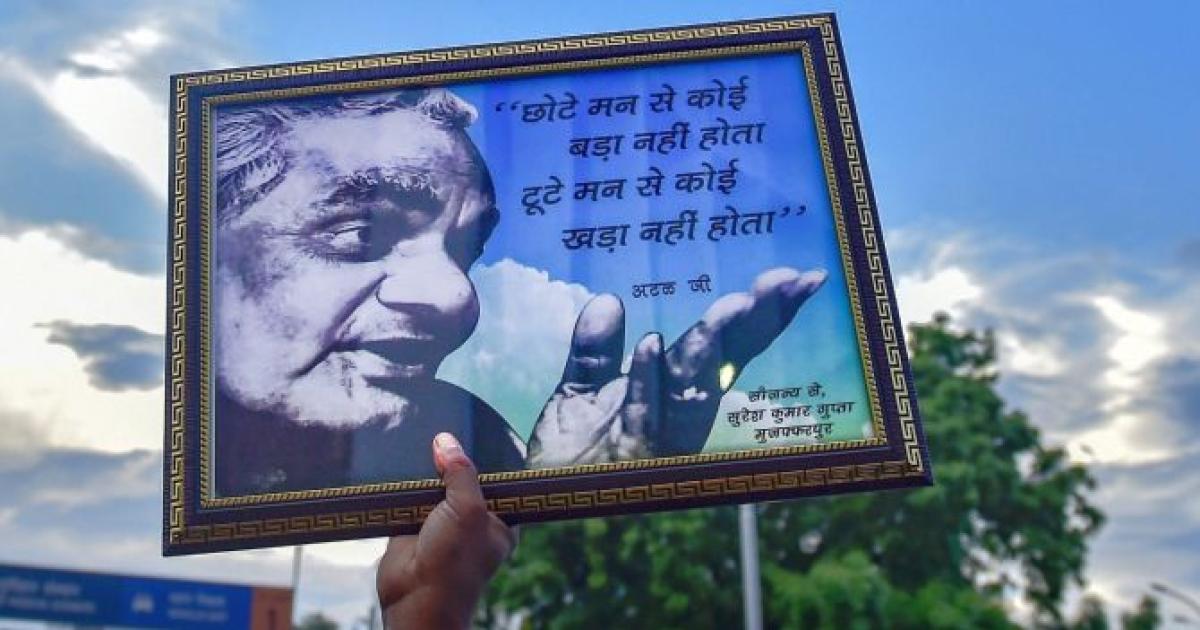 “छोटे मन से कोई
बड़ा नहीं होता
टूटे मन से कोई
खड़ा नहीं होता”
अटळ जी
सौजन्य से,
सुरेश कुमार गुप्ता
मुजफ्फरपुर